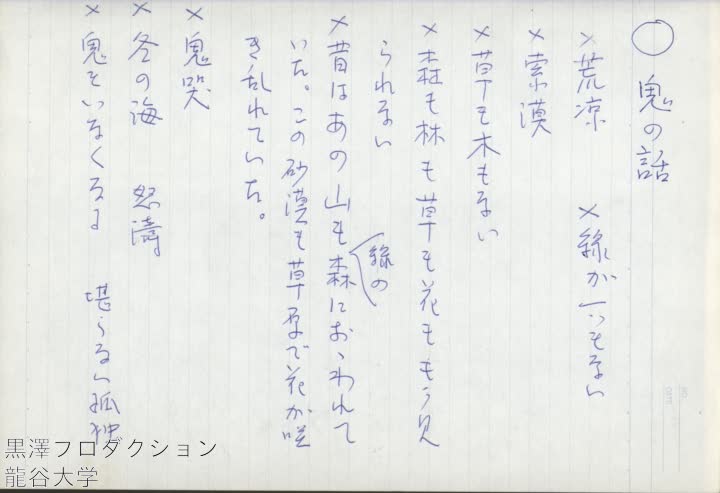 ○ 鬼の話
×荒凉 ×緑が一つもない
×索漠
×草も木もない
×森も林も草も花ももう見
られない
×昔はあの山も緑の森におゝわれて
いた。この砂漠も草原で花が咲
き乱れていた。
×鬼哭
×冬の海 怒濤
×鬼もいなくなる 堪らない孤独
黒澤プロダクション
龍谷大学